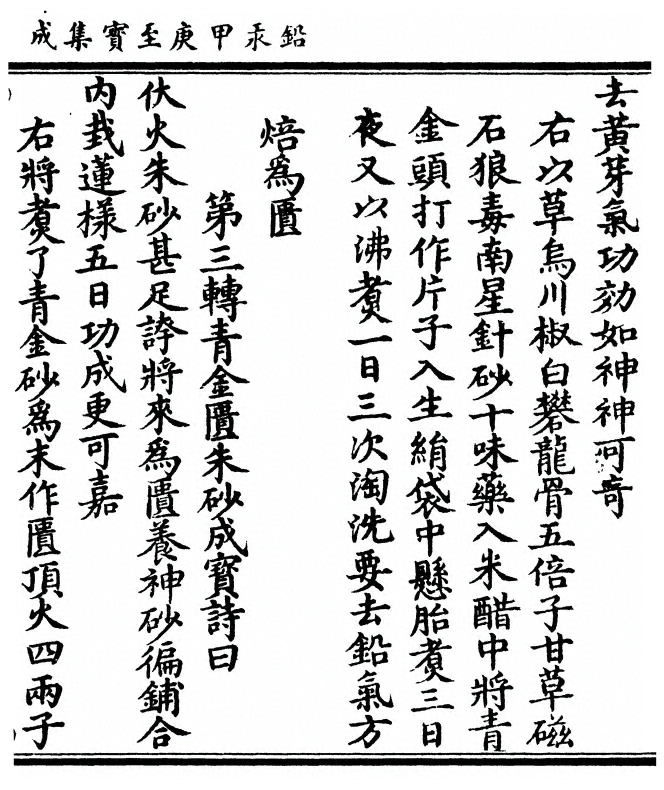 鉛汞甲庚至寶集成
去黃芽氣功効如神神可竒
右以草烏川椒白礬龍骨五倍子甘草磁
石狼毒南星針砂十味藥入米醋中將青
金頭打作片子入生絹袋中懸胎煑三日
夜又以沸煑一日三次淘洗要去鉛氣方
焙爲匱
第三轉青金匱朱砂成寶詩曰
伏火朱砂甚足誇將來爲匱養神砂徧鋪合
内栽蓮樣五日功成更可嘉
右將煑了青金砂爲末作匱頂火四兩子